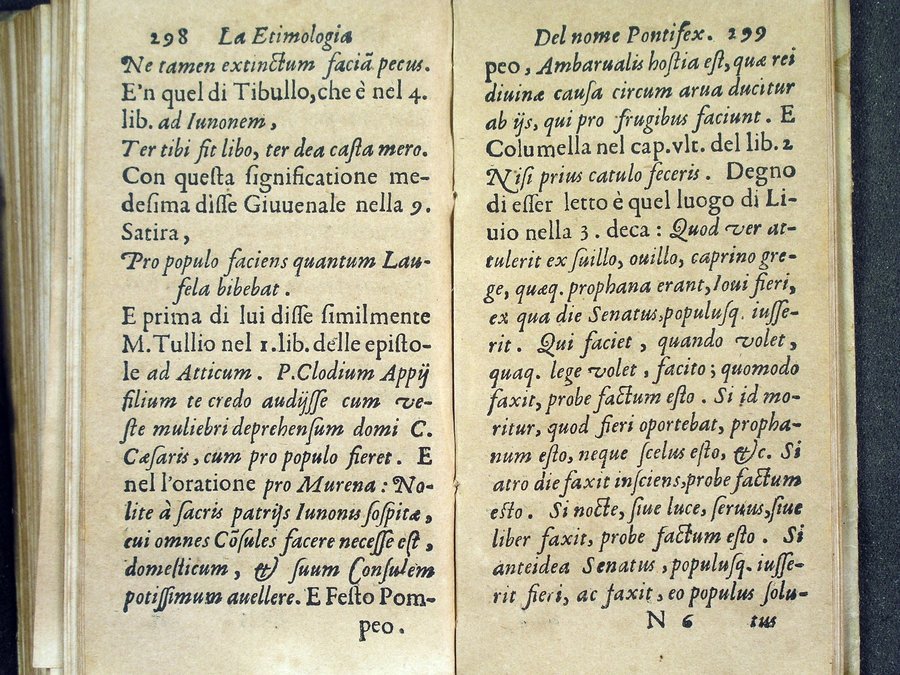 298 La Etimologia
Ne tamen extinctum faciã pecus.
E'n quel di Tibullo, che è nel 4.
lib. ad Iunonem,
Ter tibi fit libo, ter dea caſta mero.
Con queſta ſignificatione me-
deſima diſſe Giuuenale nella 9.
Satira,
Pro populo faciens quantum Lau-
ſela bibebat.
E prima di lui diſſe ſimilmente
M. Tullio nel 1. lib. delle epiſto-
le ad Atticum. P. Clodium Appij
filium te credo audijſſe cum ve-
ſte muliebri deprehenſum domi C.
Cæſaris, cum pro populo fieret. E
nel l'oratione pro Murena: No-
lite à ſacris patrijs Iunonis ſoſpitæ,
cui omnes Cõſules facere neceſſe eſt,
domeſticum, & ſuum Conſulem
potiſſimum auellere. E Feſto Pom-
peo.
Del nome Pontifex. 299
peo, Ambarualis hoſtia eſt, quæ rei
diuinæ cauſa circum arua ducitur
ab ijs, qui pro frugibus faciunt. E
Columella nel cap. vlt. del lib. 2
Niſi prius catulo feceris. Degno
di eſſer letto è quel luogo di Li-
uio nella 3. deca: Quod ver at-
tulerit ex ſuillo, ouillo, caprino gre-
ge, quæq. prophana erant, Ioui fieri,
ex qua die Senatus, populuſq. iuſſe-
rit. Qui faciet, quando volet,
quaq. lege volet, facito; quomodo
faxit, probe factum eſto. Si id mo-
ritur, quod fieri oportebat, propha-
num eſto, neque ſcelus eſto, &c. Si
atro die faxit inſciens, probe factum
eſto. Si nocte, ſiue luce, ſeruus, ſiue
liber faxit, probe factum eſto. Si
anteidea Senatus, populuſq. iuſſe-
rit fieri, ac faxit, eo populus ſolu-
N 6 tus